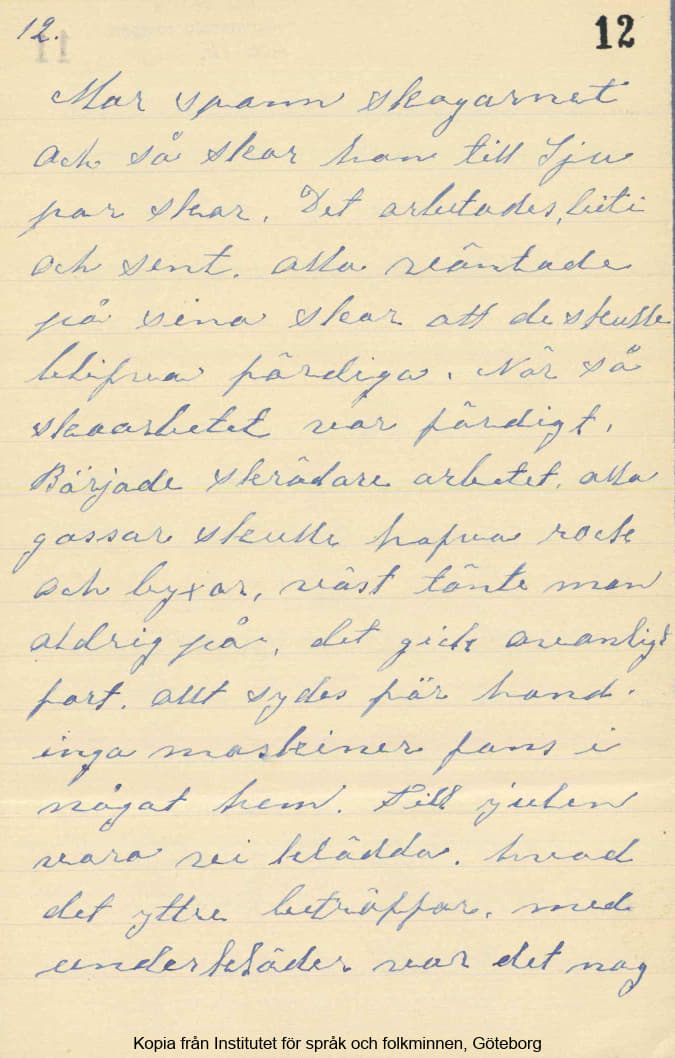 12. 12
Mor spann skogarnet
och så skar han till Sju
par skor. Det arbetades, bitti
och sent. alla väntade
på sina skor att de skulle
blifva färdiga. När så
skoarbetet var färdigt,
Började skrädare arbetet. alla
gossar skulle hafva rock
och byxor, väst tänte man
aldrig på, det gick ovanligt
fort. allt sydes för hand.
inga maskiner fans i
något hem. Till julen
vara vi klädda. hvad
det yttre beträffar. med
underkläder var det nog
Kopia från Institutet för språk och folkminnen, Göteborg